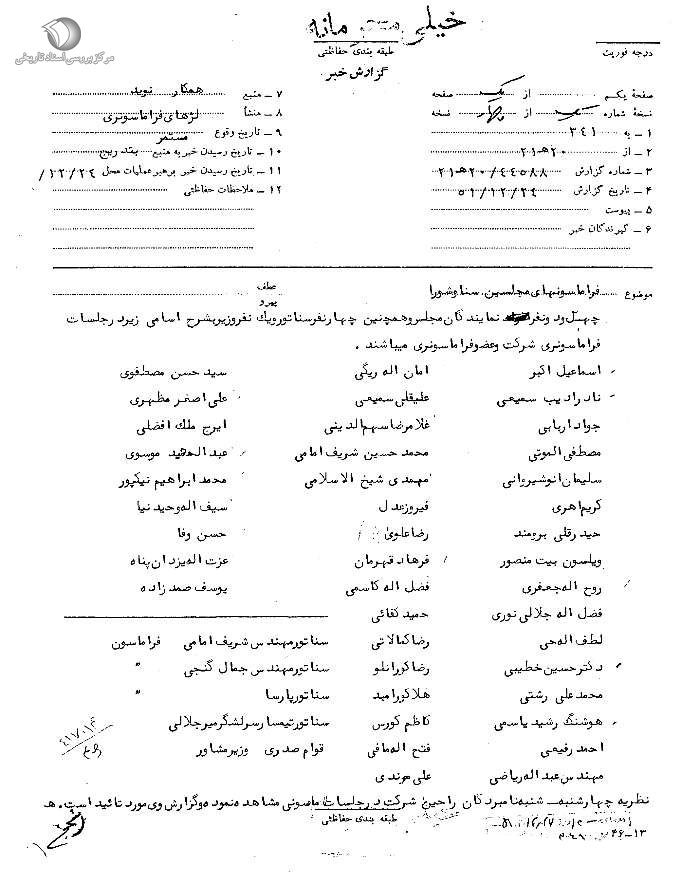 خیلی محرمانه
مرکز بررسی اسناد تاریخی
طبقه بندی حفاظتی
درجه فوریت
گزارش خبر
صفحهٔ یکم از یک صفحه
نسخهٔ شماره یک از چهار نسخه
۱ – به ۳۴۱
۲ – از ۲۰هـ۲۱
۳ – شماره گزارش ۲۱هـ۲۰/۴۴۵۸۸
۴ – تاریخ گزارش ۵۱/۱۲/۲۴
۵ – پیوست
۶ – گیرندگان خبر
۷ – منبع همکار نوید
۸ – منشأ لژهای فراماسونری
۹ – تاریخ وقوع مستمر
۱۰ – تاریخ رسیدن خبر به منبع بتدریج
۱۱ – تاریخ رسیدن خبر برهبر عملیات محل ۱۲/۲۴/
۱۲ – ملاحظات حفاظتی
موضوع فراماسونهای مجلسین سنا و شورا
عطف
پیرو
چهل و دو نفر نمایندگان مجلس و همچنین چهار نفر سناتور و یک نفر وزیر بشرح اسامی زیر در جلسات
فراماسونری شرکت و عضو فراماسونری میباشند .
اسماعیل اکبر امان اله ریگی سید حسن مصطفوی
نادر ادیب سمیعی علیقلی سمیعی علی اصغر مظهری
جواد اربابی غلامرضا سهم الدینی ایرج ملک افضلی
مصطفی الموتی محمد حسین شریف امامی عبدالحمید موسوی
سلیمان انوشیروانی مهدی شیخ الاسلامی محمد ابراهیم نیکپور
کریم اهری فیروز عدل سیف اله وحید نیا
حیدرقلی برومند رضا علوی حسن وفا
ویلسون بیت منصور فرهاد قهرمان عزت اله یزدان پناه
روح اله جعفری فضل اله کاسمی یوسف صمدزاده
فضل اله جلالی نوری حمید کفائی
لطف اله حی رضا کمالاتی سناتور مهندس شریف امامی فراماسون
دکتر حسین خطیبی رضا کورانلو سناتور مهندس جمال گنجی "
محمد علی رشتی هلاکو رامبد سناتور پارسا "
هوشنگ رشید یاسمی کاظم کورس سناتور تیمسار سرلشگر میرجلالی
احمد رفیعی فتح اله مافی قوام صدری وزیر مشاور
مهندس عبداله ریاضی علی مرندی
نظریه چهارشنبه – شنبه نامبردگان را حین شرکت در جلسات ماسونی مشاهده نموده و گزارش وی مورد تائید است . هـ
طبقه بندی حفاظتی